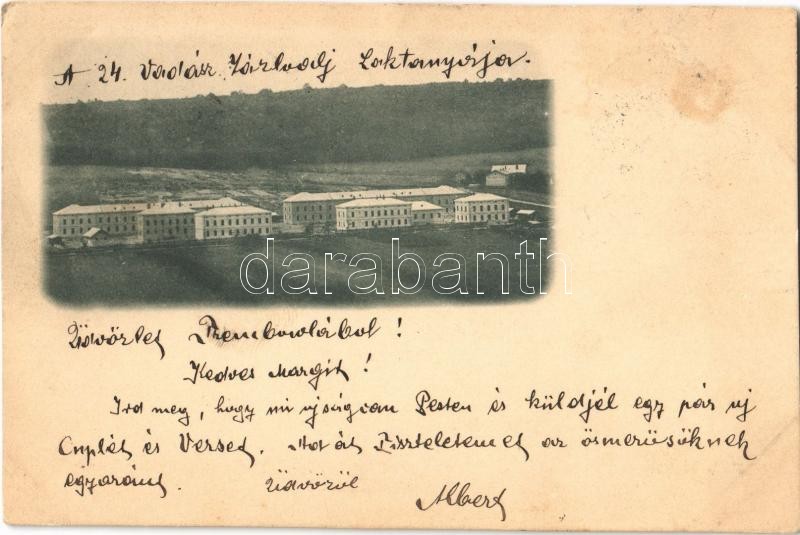 A 24. Vadász Zárlvadj Laktanyája.
darabanth
Üdvözlet Trembowlából!
Kedves Margit!
Ird meg, hogy mi ujság van Pesten és küldjél egy pár uj
Cuplét és Verset. át Tiszteletemet az ösmerősöknek
egyaránt. Üdvözöl
Albert